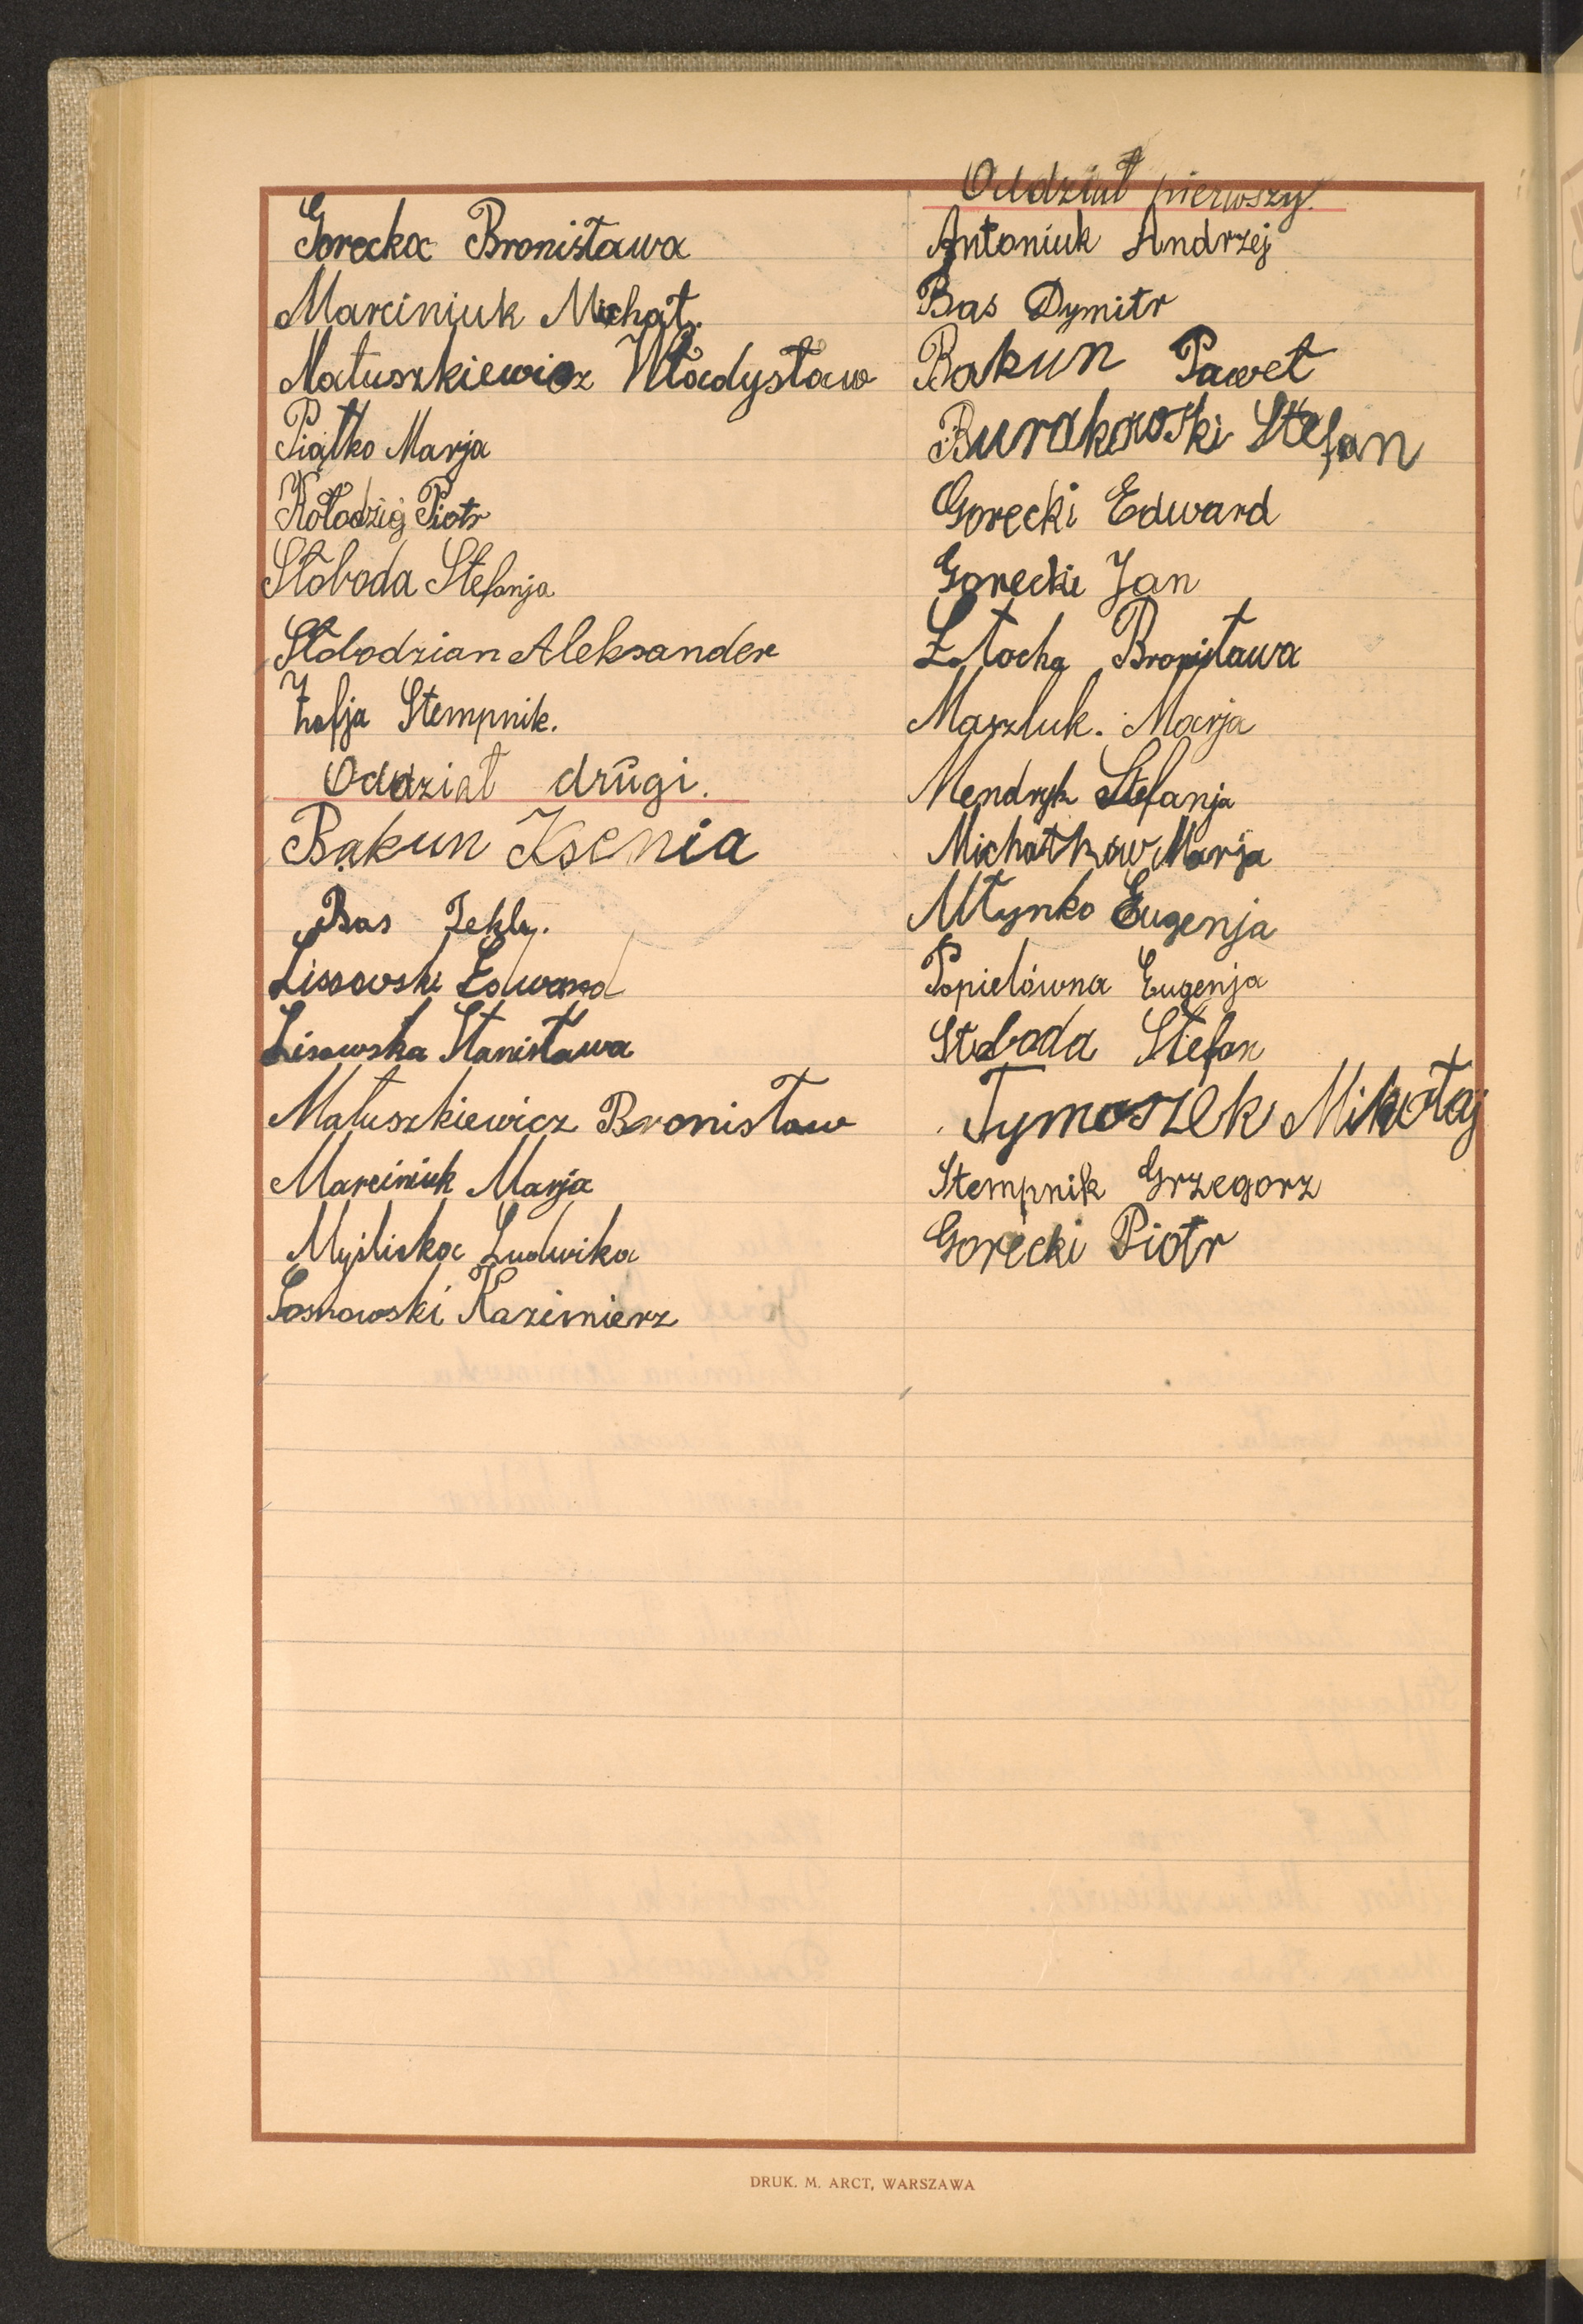 Gorecka Bronisława
Marciniuk Michał.
Matuszkiewicz Władysław
Piątko Marja
Kołodziej Piotr
Słoboda Stefanja
Słobodzian Aleksander
Zofja Stempnik.
Oddział drugi.
Bakun Ksenia
Bas Tekla.
Lissowski Edward
Lisowska Stanisława
Matuszkiewicz Bronisław
Marciniuk Marja
Myśliska Ludwika
Sosnowski Kazimierz
Oddział pierwszy.
Antoniuk Andrzej
Bas Dymitr
Bakun Paweł
Burakowski Stefan
Gorecki Edward
Gorecki Jan
Bronisława
Maszluk. Marja
Mendryk Stefanja
Michałków Marja
Młynko Eugenja
Popielówna Eugenja
Słoboda Stefan
Tymoszek Mikołaj
Stempnik Grzegorz
Gorecki Piotr
DRUK. M. ARCT, WARSZAWA